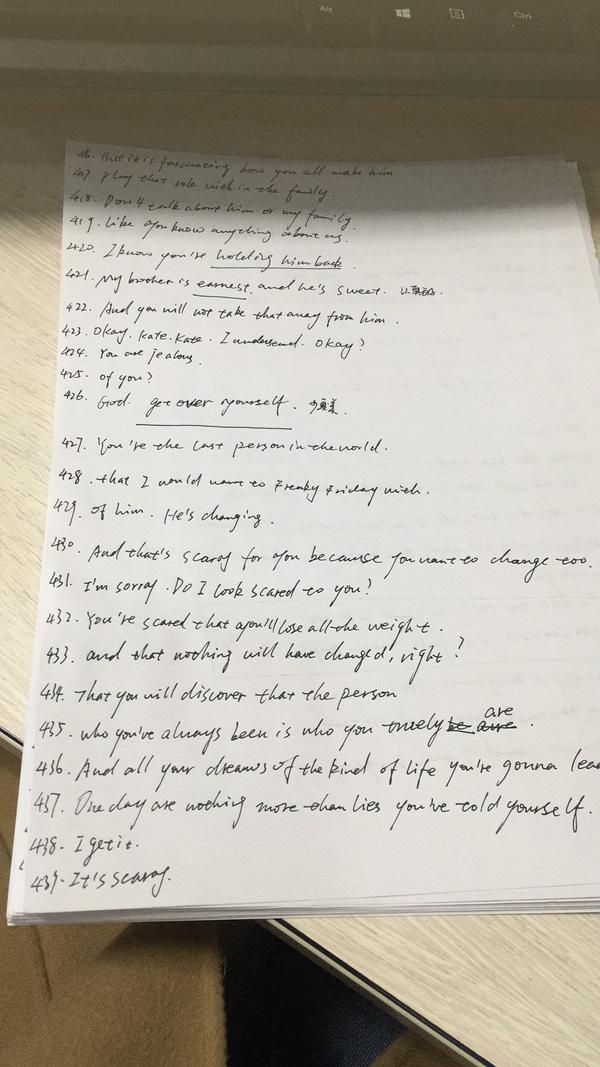 Alt
Ctrl
416. But it is fascinating how you all make him
417. Play that role with in the family.
418. Don't talk about him or my family.
419. Like you know anything about us.
420. I know you're holding him back.
421. My brother is earnest. and he's sweet.
422. And you will not take that away from him.
423. Okay. Kate. Kate. I undersend. Okay?
424. You are jealous.
425. of you?
426. God. get over yourself.
427. You're the last person in the world.
428. that I would want to Freaky Friday with.
429. of him. He's changing.
430. And that's scary for you because you want to change too.
431. I'm sorry. Do I look scared to you?
432. You're scared that you'll lose all the weight.
433. and that nothing will have changed, right?
434. That you will discover that the person
435. who you've always been is who you truely be are are.
436. And all your dreams of the kind of life you're gonna lea
437. One day are nothing more than lies you've told yourself.
438. I get it.
439. It's scary.